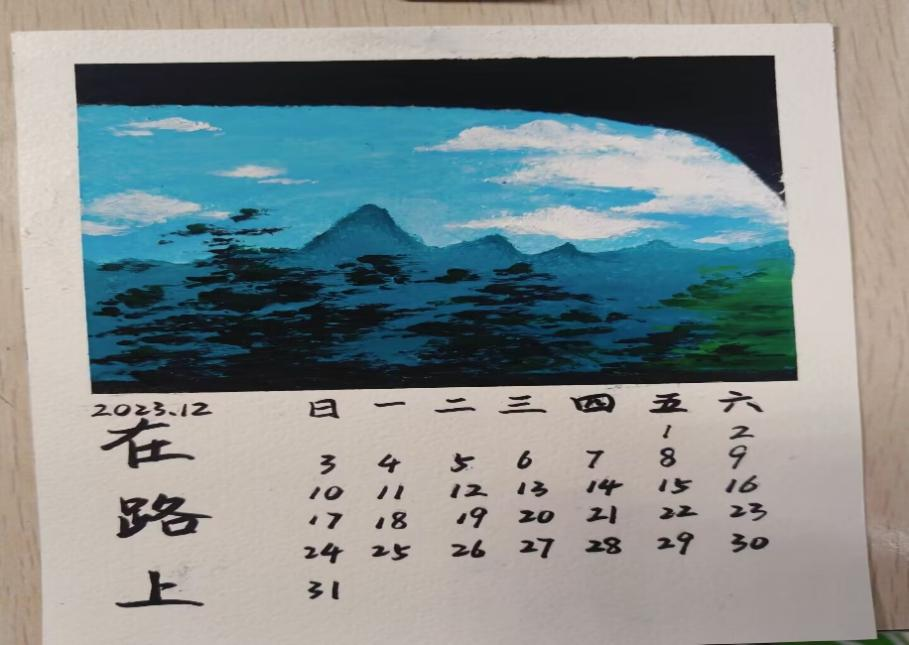 2023.12
在
路
上
日 一 二 三 四 五 六
1 2
3 4 5 6 7 8 9
10 11 12 13 14 15 16
17 18 19 20 21 22 23
24 25 26 27 28 29 30
31